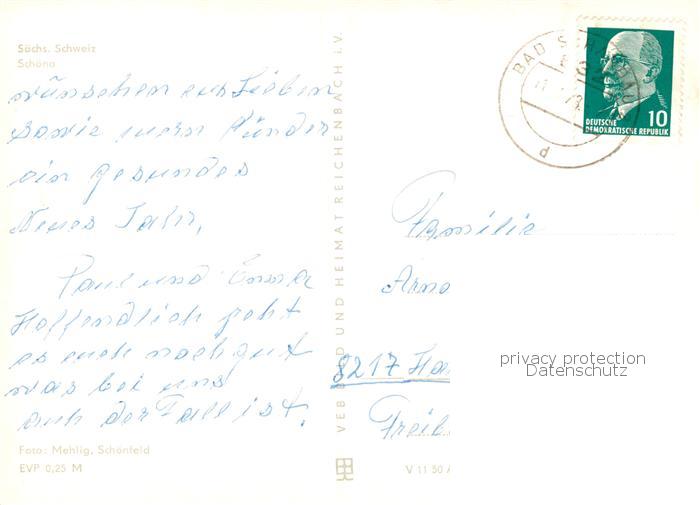 Sächs. Schweiz
Schöna
wünschen euch Lieben
sowie euren Kinder
ein gesundes
Neues Jahr,
Paul und Emma
Hoffendlich geht
es euch noch gut
was bei uns
auch der Fall ist.
Foto: Mehlig, Schönfeld
EVP 0,25 M
VEB BILD UND HEIMAT REICHENBACH i. V.
BAD SCHANDAU
DEUTSCHE
DEMOKRATISCHE REPUBLIK
10
Familie
Arno
8217 Ha
Freib
V 11 50 A
privacy protection
Datenschutz